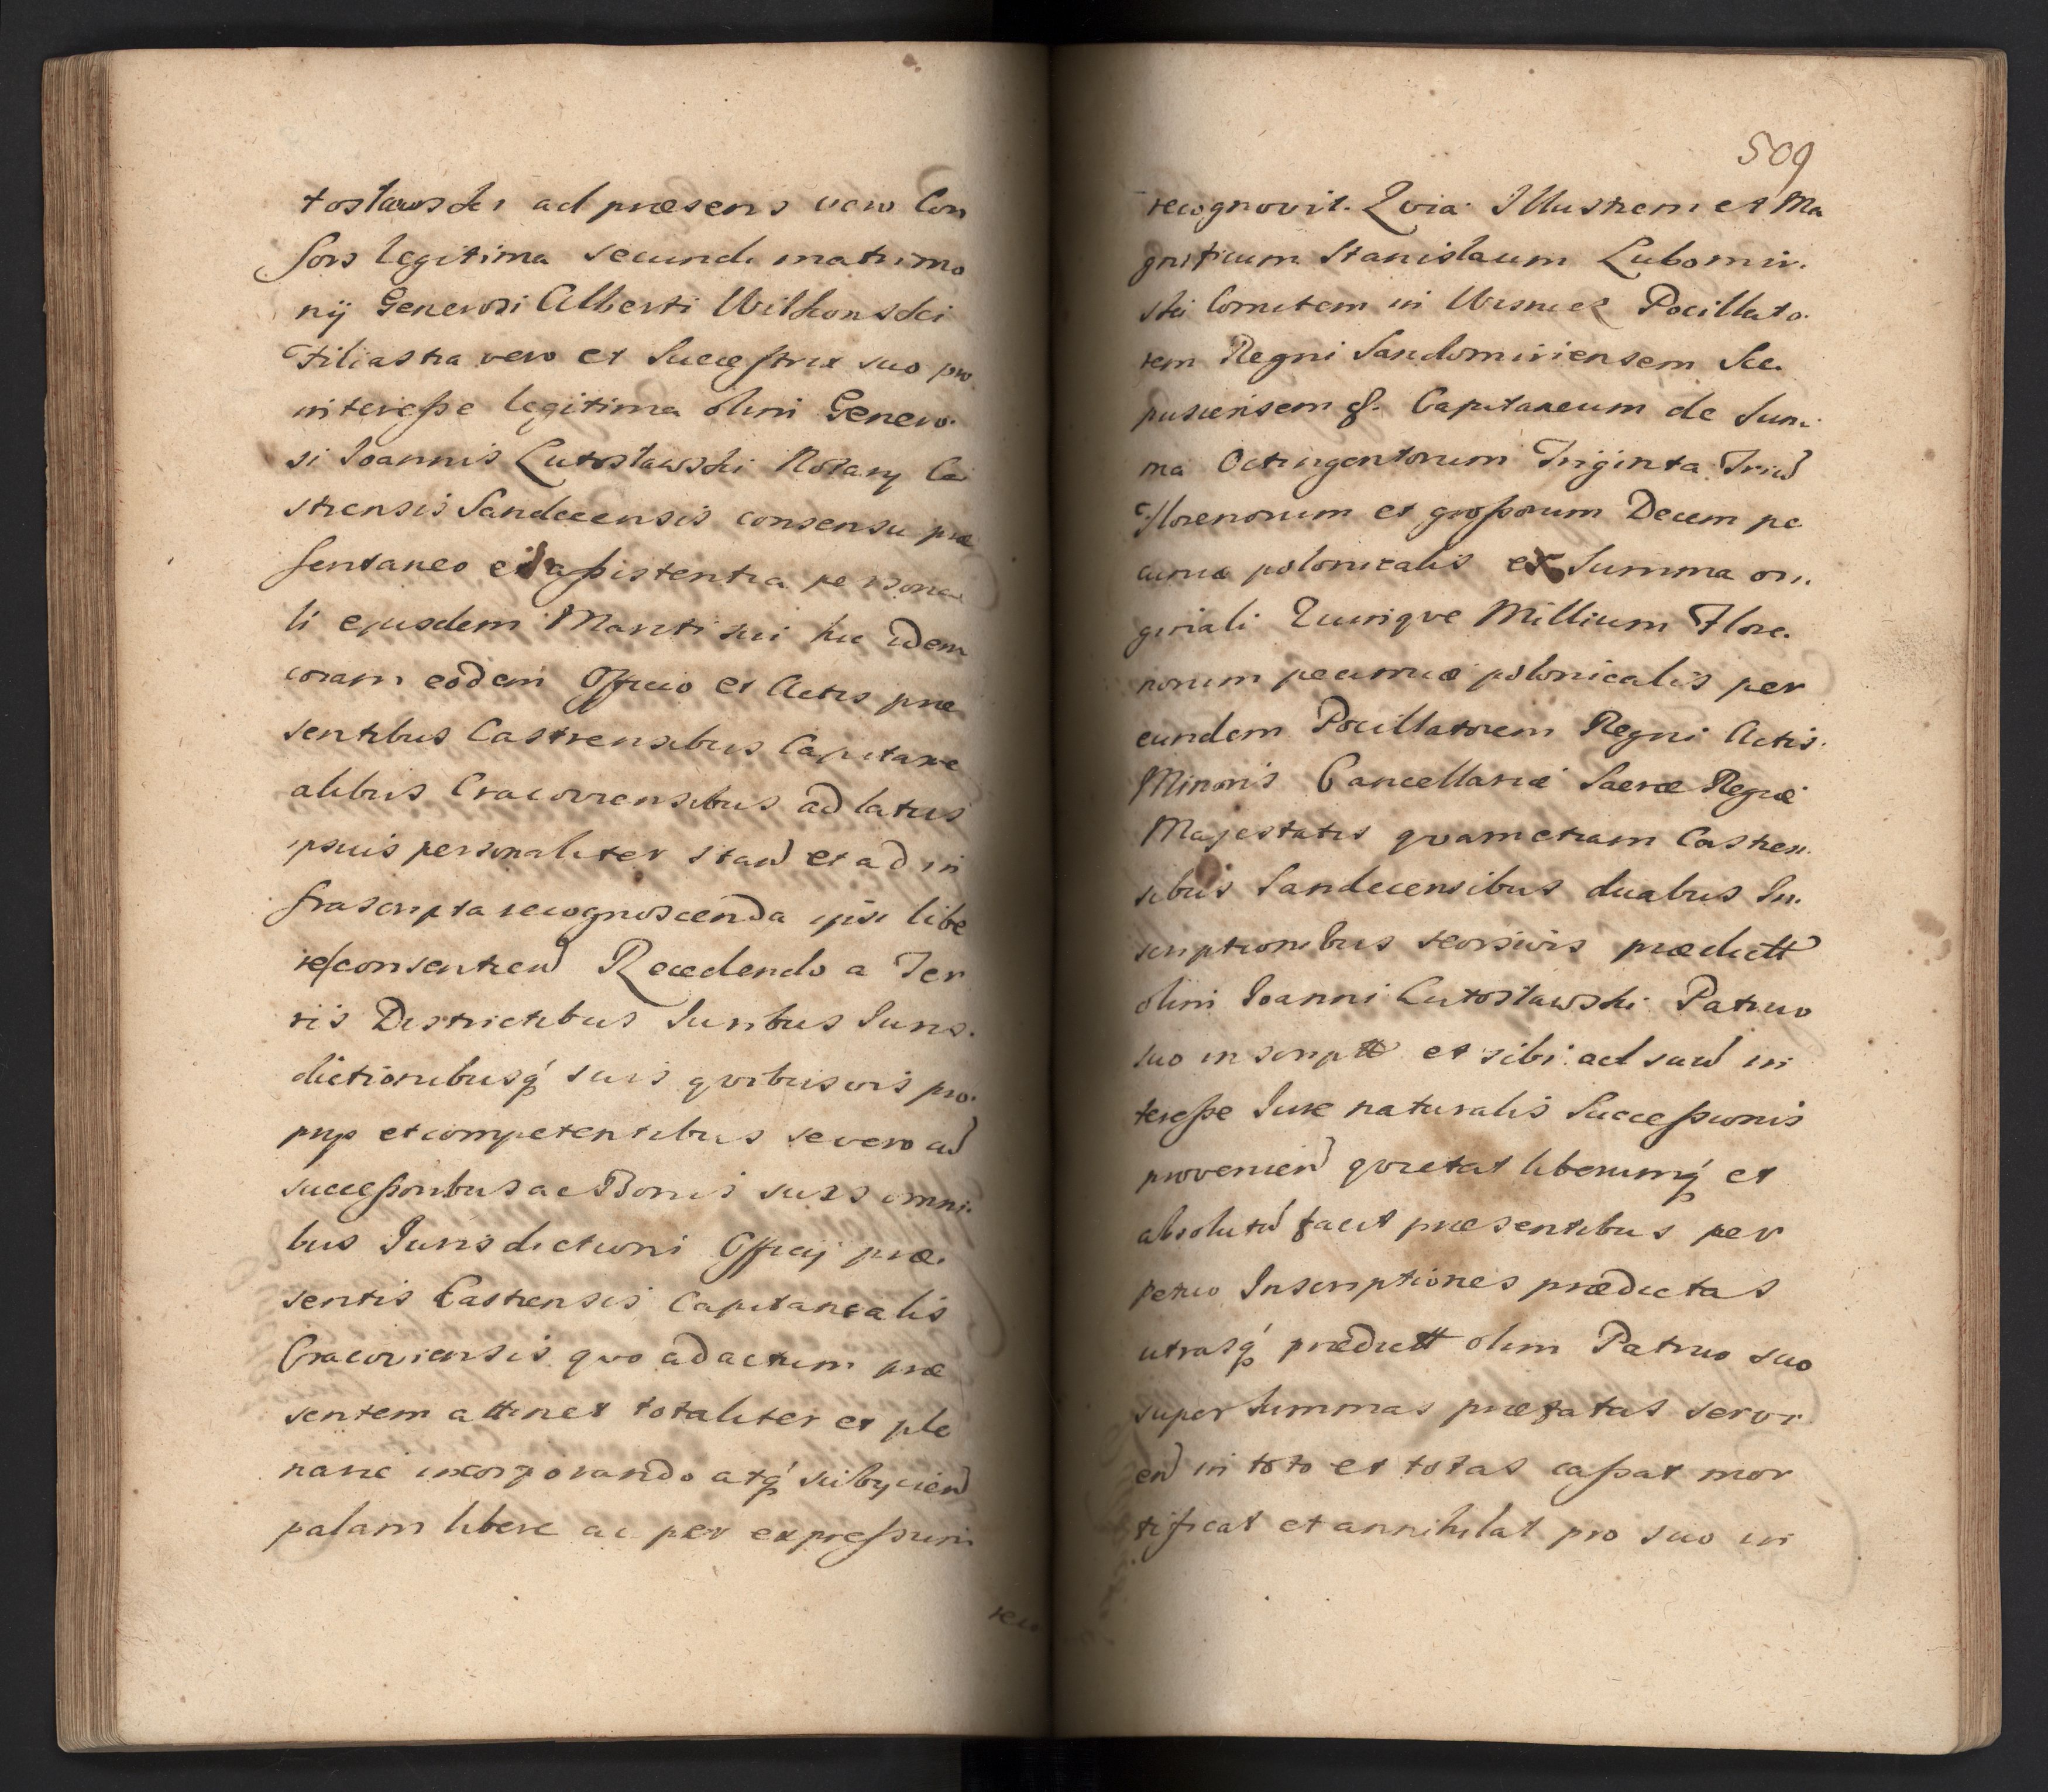 tosławski ad præsens vero Con
sors legitima secundi matrimo
nij Generosi Alberti Wilkonski
Filiastra vero et Successtrix suo pro
interesse legitima olim Genero-
si Joannis Lutosławski Notary Ca
strensis Sandecensis consensu præ
sentaneo et assistentia persona
li ejusdem Mariti sui hic idem
coram eodem Officio et Actis præ
sentibus Castrensibus Capitane
alibus Cracoviensibus ad latus
ipsius personaliter stan et ad in
frascripta recognoscenda ipsi libe
re consentien Recedendo a Ter
ris Districtibus Juribus Juris-
dictionibusq suis quibusvis pro-
prijs et competentibus se vero ac
successoribus ac Bonis suis omni-
bus Jurisdictioni Officij præ-
sentis Castrensis Capitanealis
Cracoviensis quo ad actum præ
sentem attinet totaliter et ple
narie incorporando atq subijcien
palam libere ac per expressum
reco
509
recognovit. Qvia Illustrem et Ma
gnificum Stanislaum Lubomir-
ski Comitem in Wisnicz Pocillato-
rem Regni Sandomiriensem Sce-
pusiensem &. Capitaneum de Sum-
ma Octingentorum Triginta Triu
Florenorum et grossorum Decem pe
cuniæ polonicalis ex Summa ori-
ginali Quinqve Millium Flore-
norum pecuniæ polonicalis per
eundem Pocillatorem Regni Actis
Minoris Cancellariæ Sacræ Regiæ
Majestatis qvam etiam Castren-
sibus Sandecensibus duabus In-
scriptionibus seorsivis prædictt
olim Joanni Lutosławski Patruo
suo inscriptt et sibi ad suu in
teresse Jure naturalis Successionis
provenien qvietat liberumq et
absolutu facit præsentibus per
petuo Inscriptiones prædictas
utrasq prædictt olim Patruo suo
super summas præfatas servi
en in toto et totas cassat mor
tificat et annihilat pro suo in